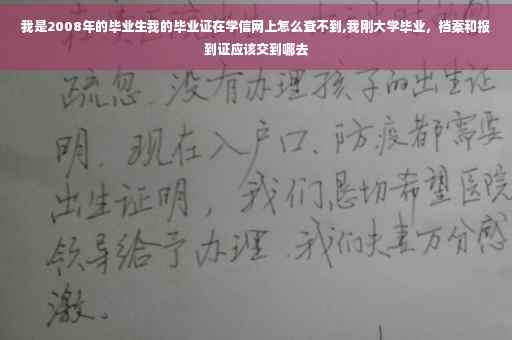 我是2008年的毕业生我的毕业证在学信网上怎么查不到,我刚大学毕业，档案和报
到证应该交到哪去
疏忽.没有办理孩子的出生证
明.现在入户口、防疫都需要
出生证明，我们恳切希望医院
领导给予办理.我们夫妻万分感
激.